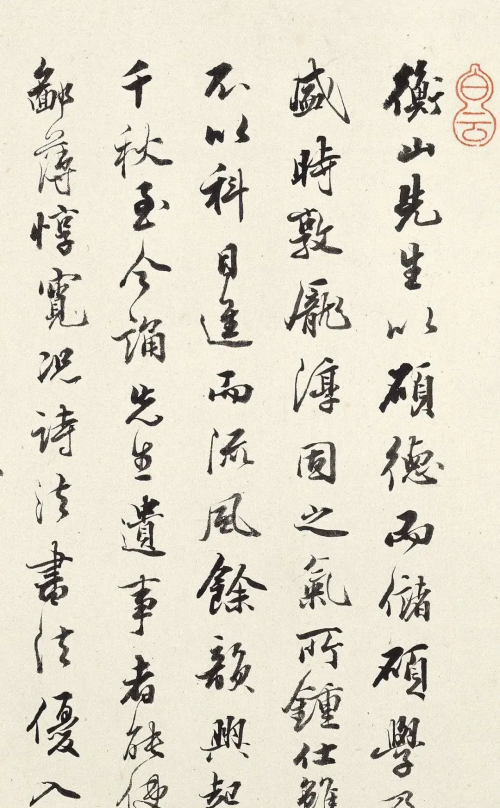 白云
衡山先生以碩德而儲碩學
盛時敦龐淳固之氣所鍾仕雖
不以科目進而流風餘韻興起
千秋至今誦先生遺事者能使
鄙薄惇寬況詩法書法優入